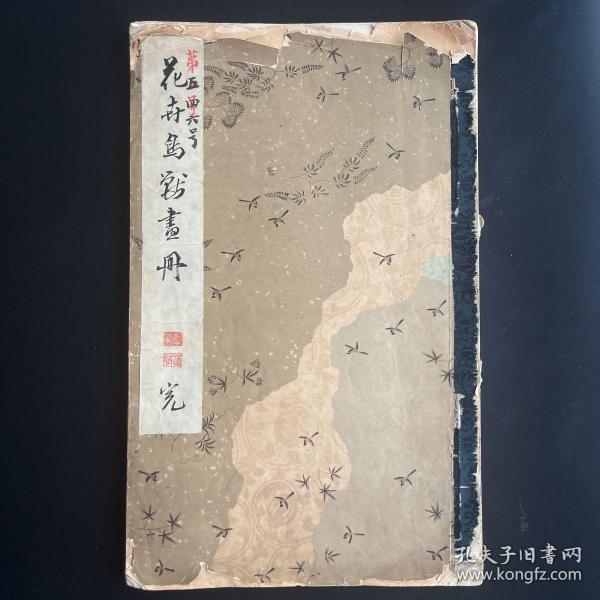 第五甲六号
花卉鳥獣畫冊
完
孔夫子旧书网
www.kongfz.com